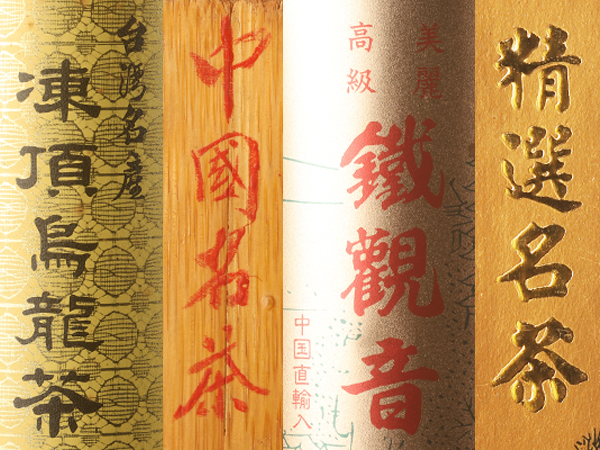 台湾名産
凍頂烏龍茶
中國名茶
美麗
高級
鐵觀音
中国直輸入
精選名茶